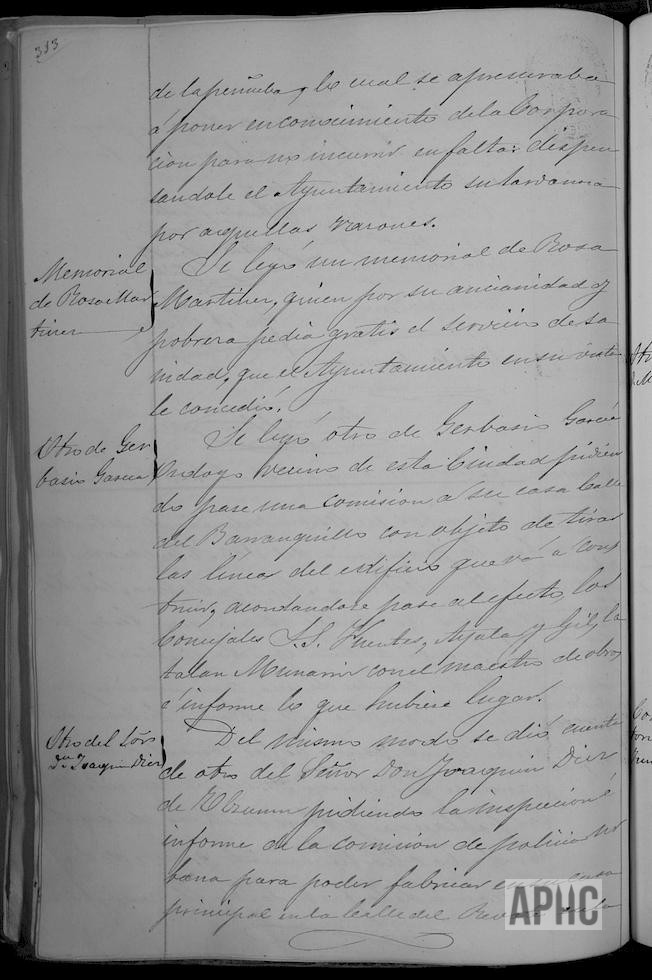 313
de la peñuela, lo cual se apresuraba
á poner en conocimiento de la Corpora
cion para no incurrir en falta: dispen
sandole el Ayuntamiento su tardanza
por aquellas razones.
Memorial
de Rosa Mar
tinez
Se leyó un memorial de Rosa
Martinez, quien por su ancianidad y
pobreza pedia gratis el servicio de sa
nidad, que el Ayuntamiento en su vista
le concedió.
Otro de Ger
basio Garcia
Se leyó otro de Gerbasio Garcia
vecino de esta Ciudad pidien
do pase una comision á su casa Calle
del Barranquillo con objeto de tirar
las linea del edificio que vá á cons
truir, acordandose pase al efecto los
Concejales S.S. Fuentes, Ayala y Gil, Ca
talan Munarriz con el maestro de obras
é informe lo que hubiese lugar.
Otro del Señor
Dn Joaquin Diez
Del mismo modo se dió cuenta
de otro del Señor Don Joaquin Diez
de Ulzurrun pidiendo la inspeccion é
informe de la comision de policia ur
bana para poder fabricar en su casa
principal en la Calle del
APHC